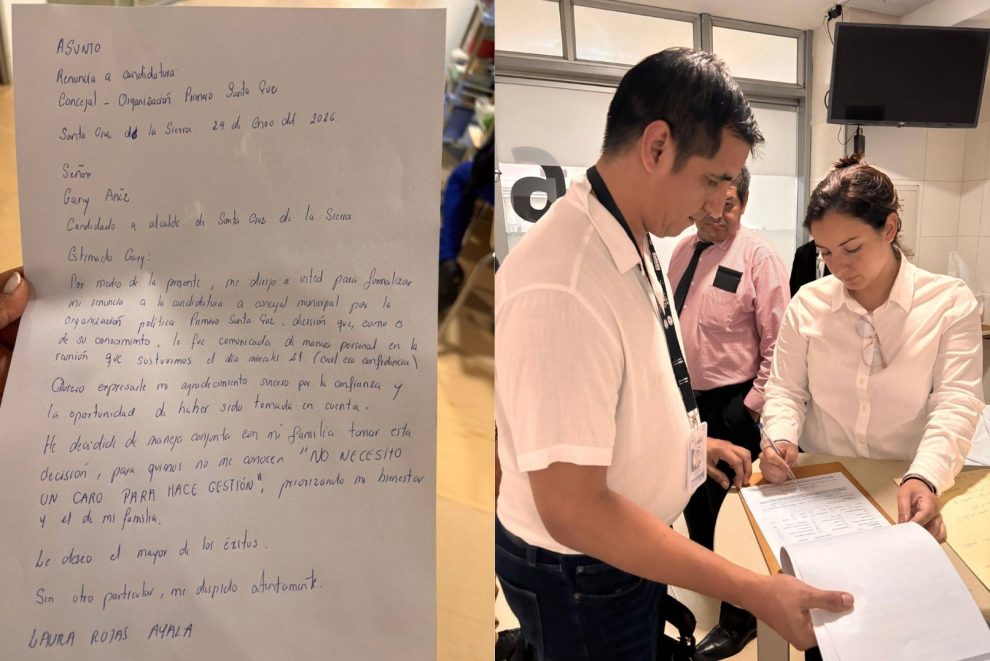 ASUNTO
Renuncia a candidatura
Concejal - Organización Primero Santa Cruz
Santa Cruz de la Sierra 29 de Enero del 2026.
Señor
Gary Añez
Candidado a alcalde de Santa Cruz de la Sierra
Estimado Gary:
Por medio de la presente, me dirijo a usted para formalizar
mi renuncia a la candidatura a concejal municipal por la
organización política Primero Santa Cruz, dicisión que, como es
de su conocimiento, le fue comunicada de manera personal en la
reunión que sustuvimos el día miercoles 21 (cual era confidencial)
Quiero expresarle mi agradecimiento sincero por la confianza y
la oportunidad de haber sido tomada en cuenta.
He decidido de maneja conjunta con mi familia tomar esta
decisión, para quienes no me conocen "NO NECESITO
UN CARO PARA HACE GESTIÓN", priorizando mi bienestar
y el de mi familia.
Le deseo el mayor de los éxitos.
Sin otro particular, me despido atentamente.
LAURA ROJAS AYALA
6